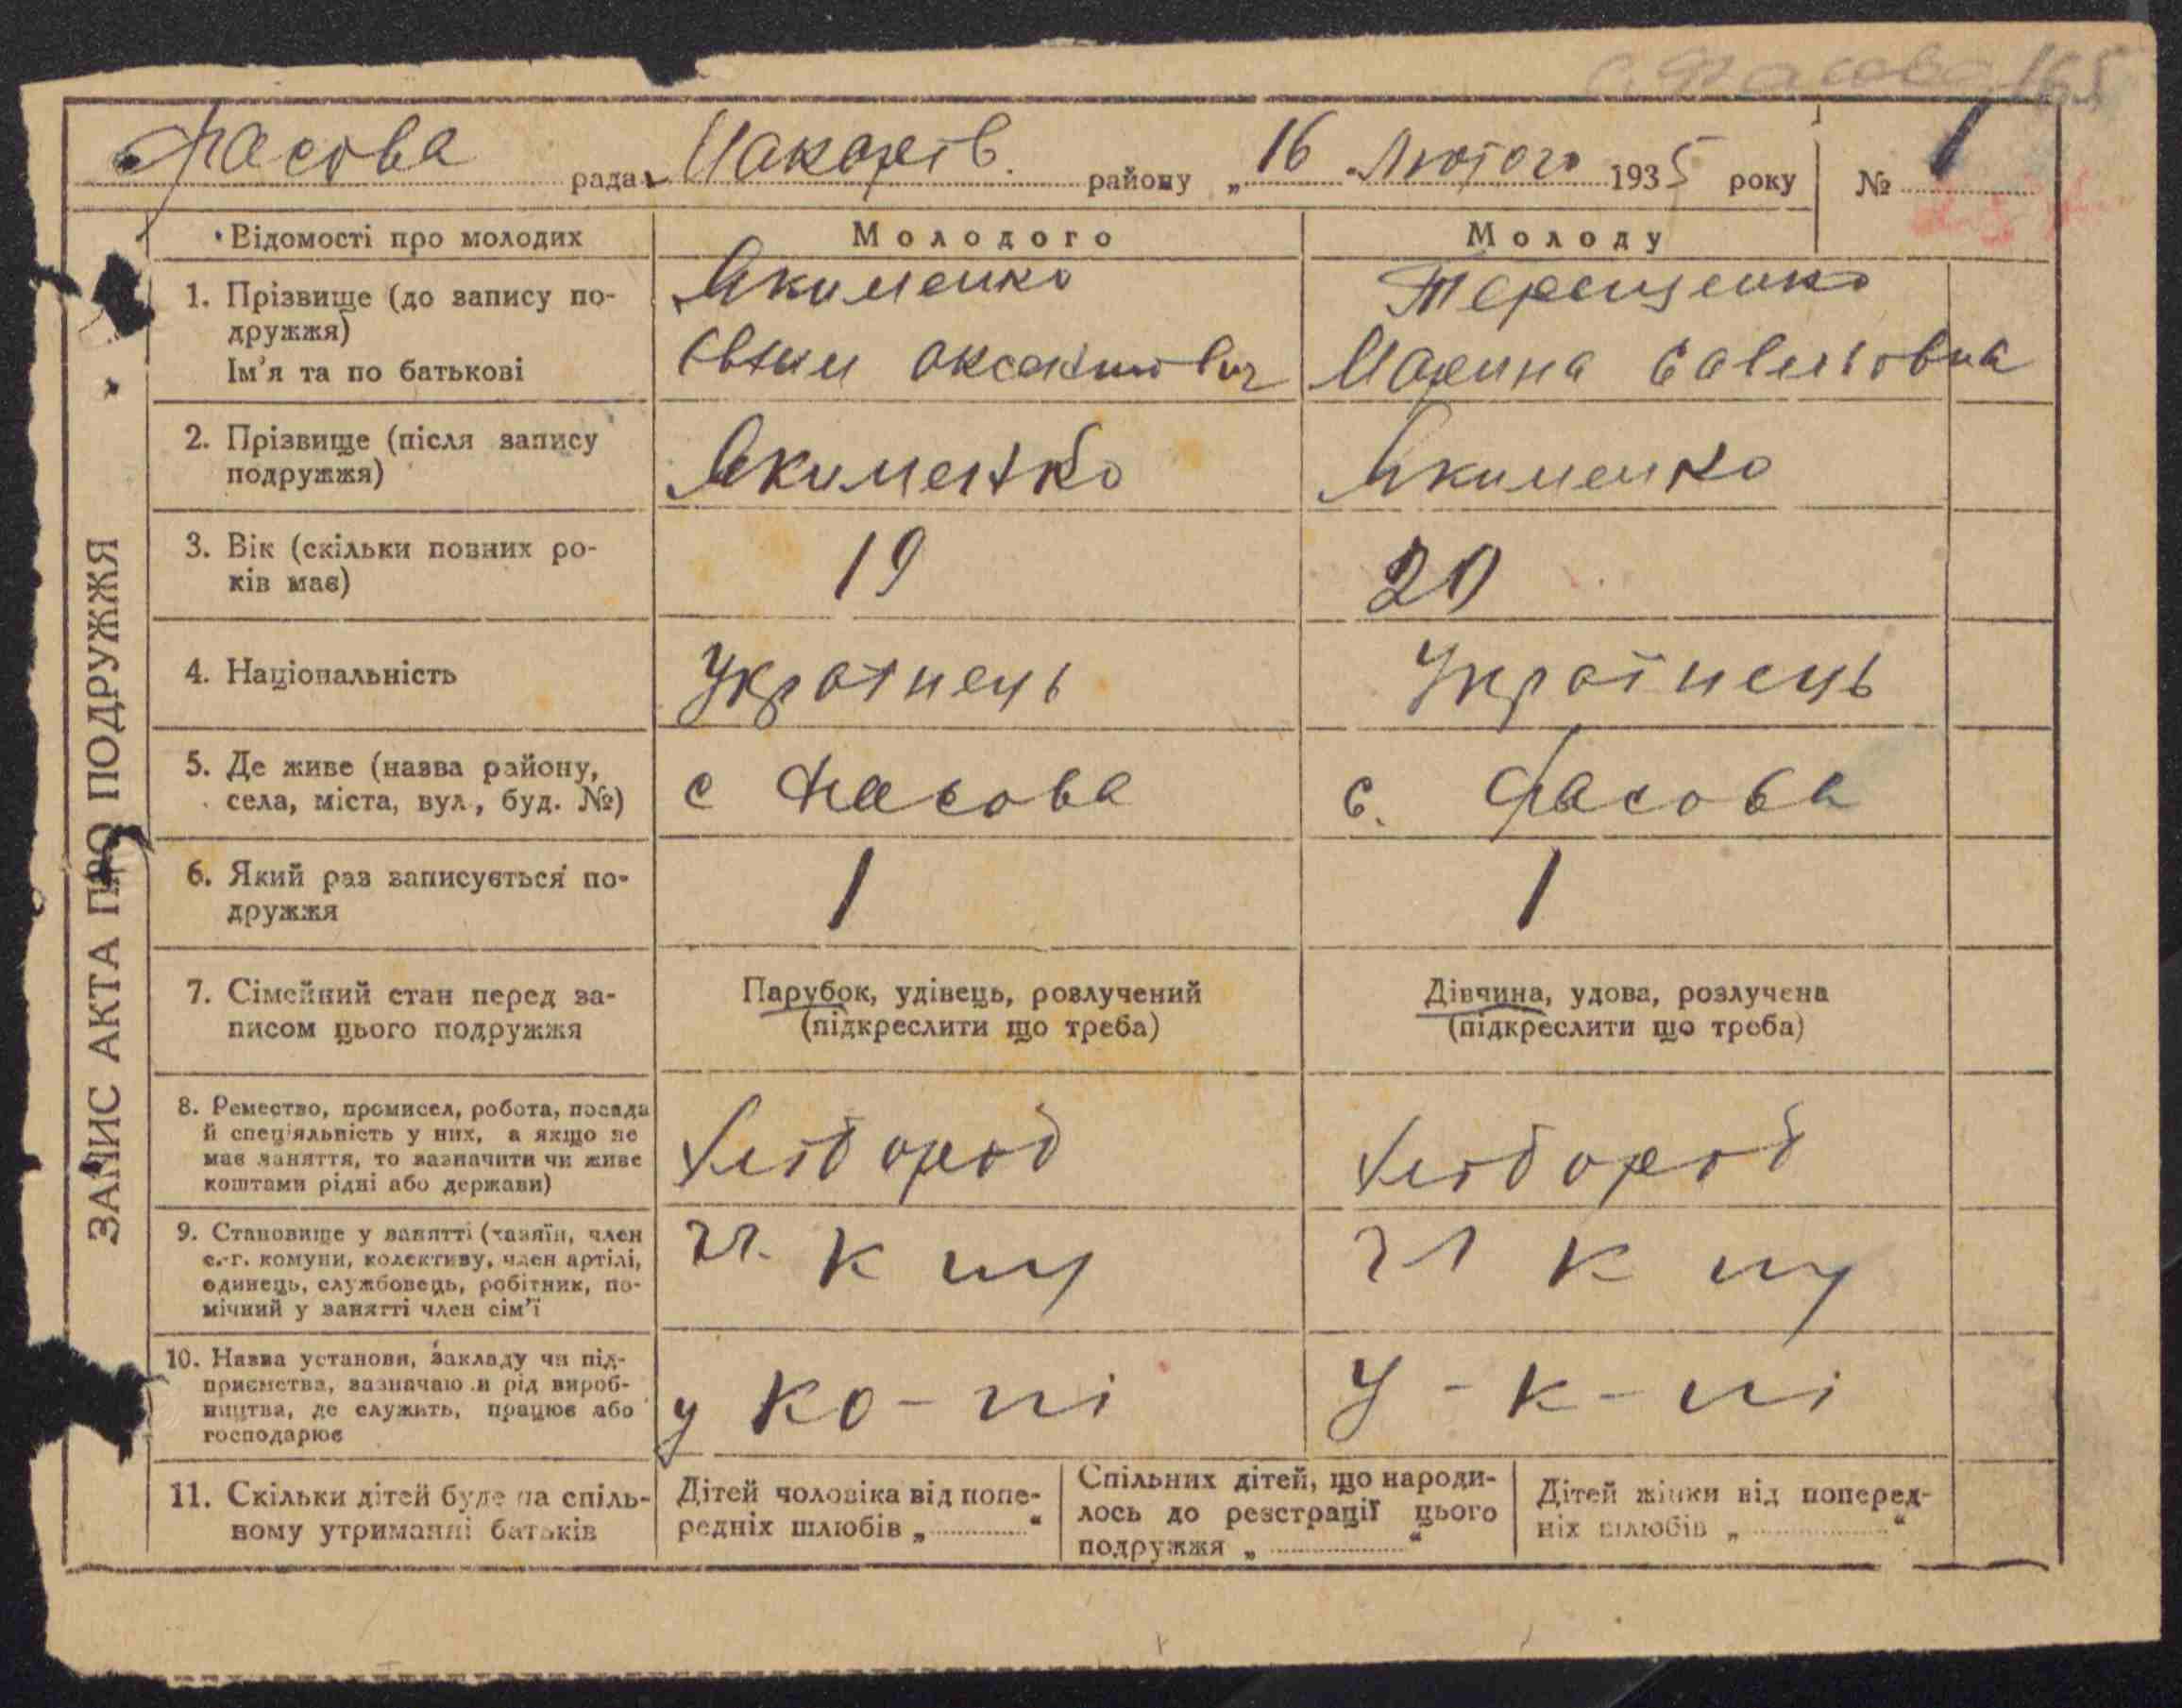 с. Фасова 165
Фасова рада Макарів. району „16“ Лютого 1935 року № 1
ЗАПИС АКТА ПРО ПОДРУЖЖЯ
Відомості про молодих Молодого Молоду
1. Прізвище (до запису по- Якименко Терещенко
дружжя)
Ім'я та по батькові Марина Савельовна
2. Прізвище (після запису Якименко Якименко
подружжя)
3. Вік (скільки повних ро- 19 20
ків має)
4. Національність Українець Українець
5. Де живе (назва району, с Фасова с. Фасова
села, міста, вул., буд. №)
6. Який раз записується по- 1 1
дружжя
7. Сімейний стан перед за- Парубок, удівець, розлучений Дівчина, удова, розлучена
писом цього подружжя (підкреслити що треба) (підкреслити що треба)
8. Ремество, промисел, робота, посада
й спец'яльність у них, а якщо не Хлібороб Хлібороб
має заняття, то зазначити чи живе
коштами рідні або держави)
9. Становище у занятті (хазяїн, член
с.-г. комуни, колективу, член артілі, чл. к пу чл к пу
одинець, службовець, робітник, по-
мічний у занятті член сім'ї
10. Назва установи, закладу чи під-
приємства, зазначаючи рід вироб- у ко-пі У-к-пі
ництва, де служить, працює або
господарює
11. Скільки дітей буде на спіль- Дітей чоловіка від попе- Спільних дітей, що народи- Дітей жінки від поперед-
ному утриманні батьків редніх шлюбів „ “ лось до реєстрації цього ніх шлюбів „ “
подружжя „ “